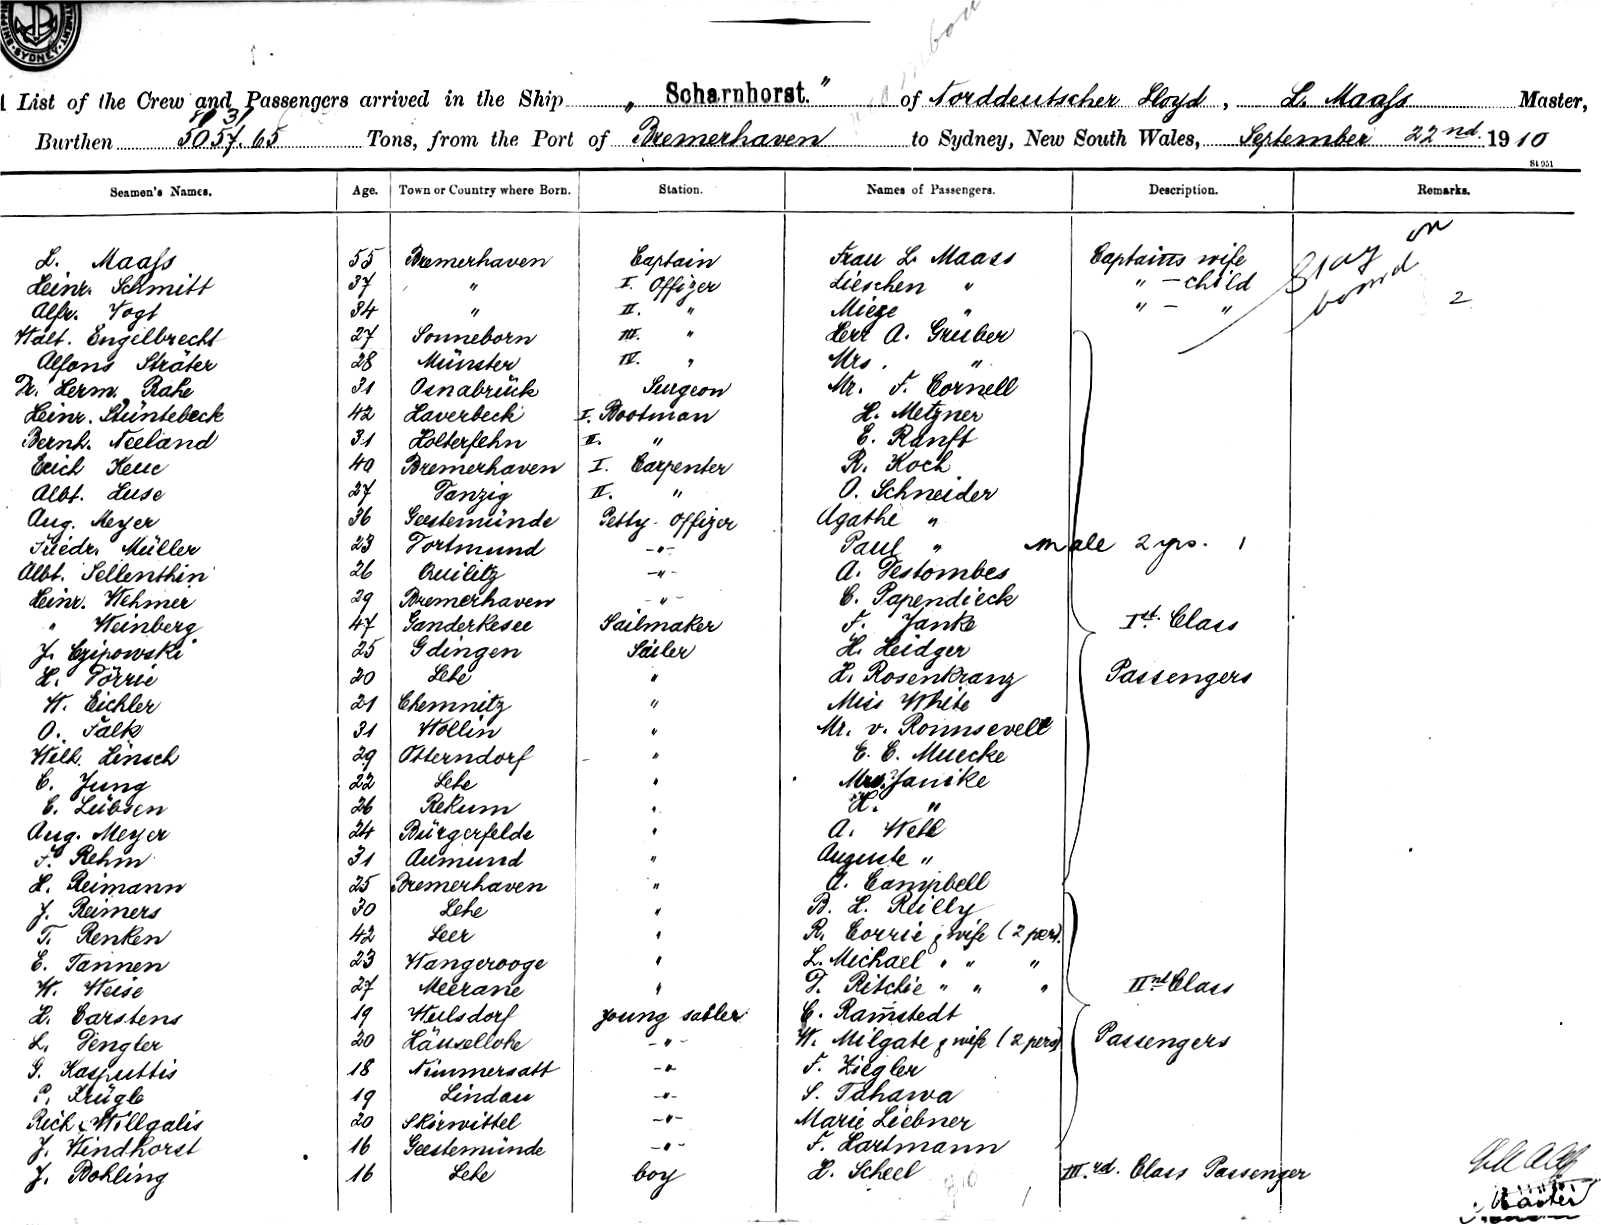 SYDNEY
List of the Crew and Passengers arrived in the Ship „Scharnhorst." of Norddeutscher Lloyd, L. Maaſs Master,
Burthen 5057.65 Tons, from the Port of Bremerhaven to Sydney, New South Wales, September 22nd. 1910
St 951
Seamen's Names. Age. Town or Country where Born. Station. Names of Passengers. Description. Remarks.
L. Maaſs 55 Bremerhaven Captain Frau L. Maass Captains wife Stay on board
Heinr. Schmitt 37 " I. Offizer Lieschen " " - child
Alfr. Vogt 34 " II. " Mieze " " - " 2
Walt. Engelbrecht 27 Sonneborn III. " Herr A. Gruber
Alfons Sträter 28 Münster IV. " Mrs. "
Dr. Herm. Rahe 31 Osnabrück Surgeon Mr. F. Cornell
Heinr. Stüntebeck 42 Haverbeck I. Bootman H. Metzner
Bernh. Neeland 31 Holterfehn II. " E. Ranft
Erich Keuc 40 Bremerhaven I. Carpenter R. Koch
Albt. Huse 27 Danzig II. " O. Schneider
Aug. Meyer 36 Geestemünde Petty-Offizer Agathe "
Friedr. Müller 23 Dortmund -"- Paul " male 2 yrs. 1
Albt. Sellenthin 26 Quilitz -"- A. Destombes
Heinr. Wehmer 29 Bremerhaven -"- C. Papendieck
" Weinberg 47 Ganderkesee Sailmaker F. Janke Ist. Class
J. Czipowski 25 Gdingen Sailer H. Heidger
H. Dörrie 20 Lehe " H. Rosenkranz Passengers
W. Eichler 21 Chemnitz " Miss White
O. Falk 31 Wollin " Mr. v. Rounsevell
Wilh. Hinsch 29 Otterndorf " E. C. Muecke
C. Jung 22 Lehe " Mrs. Janike
C. Lübsen 26 Rekum " H. "
Aug. Meyer 24 Bürgerfelde " A. Well
F. Rehm 31 Aumund " Auguste "
H. Reimann 25 Bremerhaven " A. Campbell
J. Reimers 30 Lehe " B. H. Reilly
T. Renken 42 Leer " R. Corrie & wife (2 pers).
E. Tannen 23 Wangerooge " L. Michael " " "
W. Weise 27 Meerane " D. Ritchie " " " IInd Class
H. Carstens 19 Wulsdorf young sailer C. Ram̄stedt
L. Dengler 20 Häusellohe -"- W. Milgate & wife (2 pers) Passengers
G. Kasputtis 18 Nimmersatt -"- F. Ziegler
P. Krügle 19 Lindau -"- S. Tahawa
Rich. Willgalis 20 Skirwittel -"- Marie Liebner
J. Windhorst 16 Geestemünde -"- F. Hartmann
J. Bohling 16 Lehe boy H. Scheel IIIrd. Class Passenger
Master